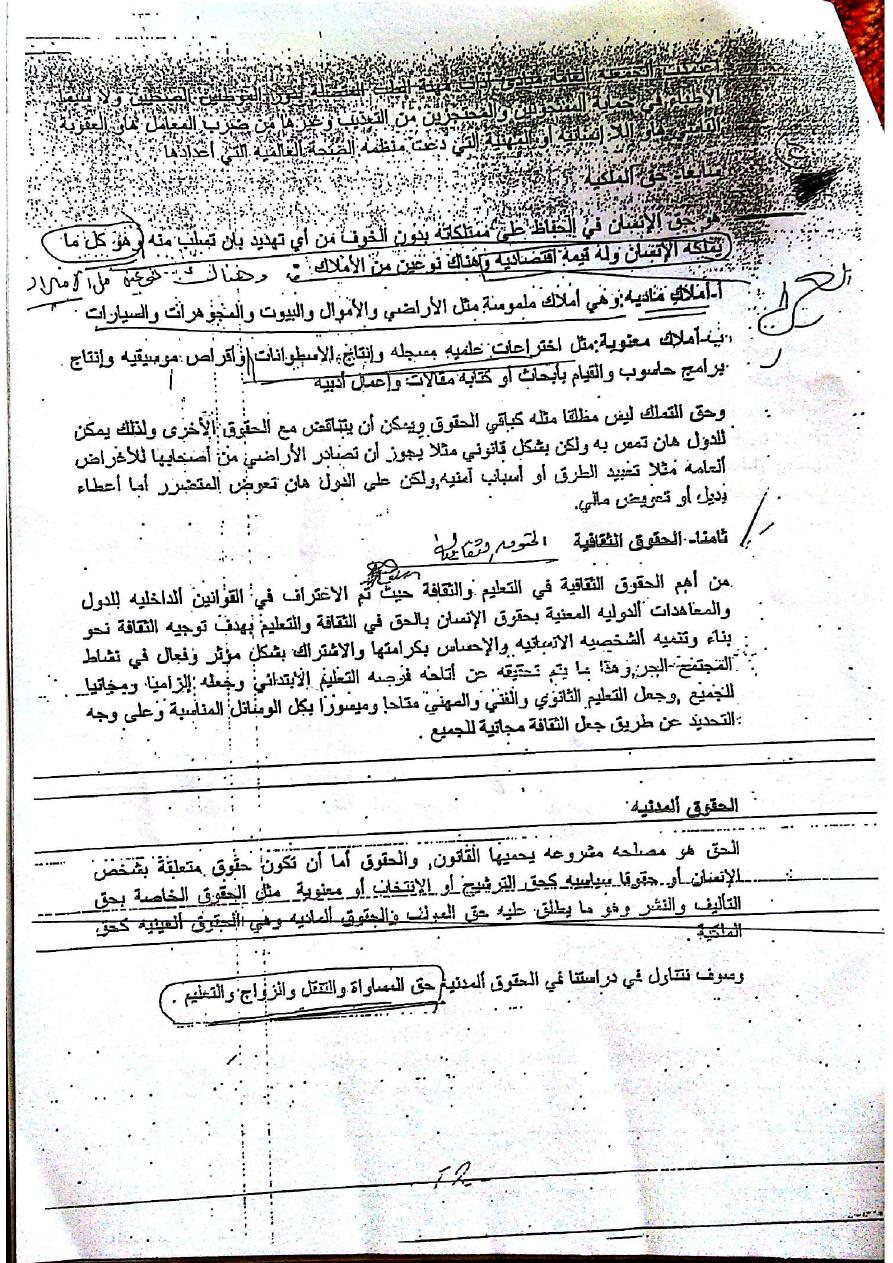 اعتمدت الجمعية العامة مبادئ أداب مهنة الطب المتصلة بدور الموظفين الصحيين ولا سيما
الأطباء في حماية المسجونين والمحتجزين من التعذيب وغيرها من ضرب المعامل هاو العقوبة
القاسي هاو اللا إنسانية أو المهنية التي دعت منظمه الصحة العالمية التي أعدادها
سابعا- حق الملكية
هو حق الإنسان في الحفاظ على ممتلكاته بدون الخوف من أي تهديد بان تسلب منه وهو كل ما
يملكه الإنسان وله قيمة اقتصاديه وهناك نوعين من الأملاك وهناك نوعين من الأملاك
أ-أملاك ماديه:وهي أملاك ملموسة مثل الأراضي والأموال والبيوت والمجوهرات والسيارات
ب-أملاك معنوية:مثل اختراعات علميه مسجله وإنتاج الاسطوانات وأقراص موسيقيه وإنتاج
برامج حاسوب والقيام بأبحاث أو كتابه مقالات وإعمال أدبيه
وحق التملك ليس مطلقا مثله كباقي الحقوق ويمكن أن يتناقض مع الحقوق الأخرى ولذلك يمكن
للدول هان تمس به ولكن بشكل قانوني مثلا يجوز أن تصادر الأراضي من أصحابها للأغراض
ألعامه مثلا تعبيد الطرق أو أسباب آمنيه,ولكن على الدول هان تعوض المتضرر أما أعطاء
بديل أو تعويض مالي.
ثامنا- الحقوق الثقافية الحقوق الثقافية
من أهم الحقوق الثقافية في التعليم والثقافة حيث تم الاعتراف في القوانين ألداخليه للدول
والمعاهدات ألدوليه المعنية بحقوق الإنسان بالحق في الثقافة والتعليم بهدف توجيه الثقافة نحو
بناء وتنميه ألشخصيه الانسانيه والإحساس بكرامتها والاشتراك بشكل مؤثر وفعال في نشاط
المجتمع الحر,وهذا ما يتم تحقيقه عن أتاحه فرصه التعليم الابتدائي وجعله إلزاميا ومجانيا
للجميع ,وجعل التعليم الثانوي والفني والمهني متاحا وميسورا بكل الوسائل المناسبة وعلى وجه
التحديد عن طريق جعل الثقافة مجانية للجميع .
الحقوق ألمدنيه
الحق هو مصلحه مشروعه يحميها القانون, والحقوق أما أن تكون حقوق متعلقة بشخص
الإنسان أو حقوقا سياسيه كحق الترشيح أو الإنتخاب أو معنوية مثل الحقوق الخاصة بحق
التأليف والنشر وهو ما يطلق عليه حق المؤلف والحقوق ألماديه وهي الحقوق العينيه كحق
الملكية .
وسوف نتناول في دراستنا في الحقوق ألمدنية حق المساواة والتنقل والزواج والتعليم .